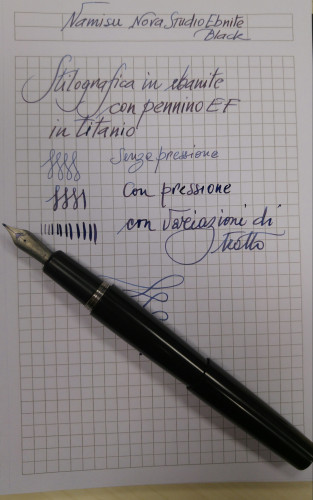 Namisu Nova Studio Ebnite
Black
Stilografica in ebanite
con pennino EF
in titanio
Senza pressione
Con pressione
con variazioni di
tratto